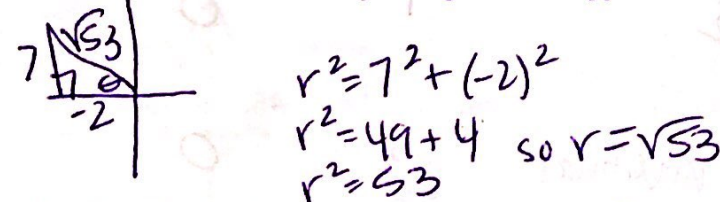 √53
7
θ
-2
r²=7²+(-2)²
r²=49+4 so r=√53
r²=53